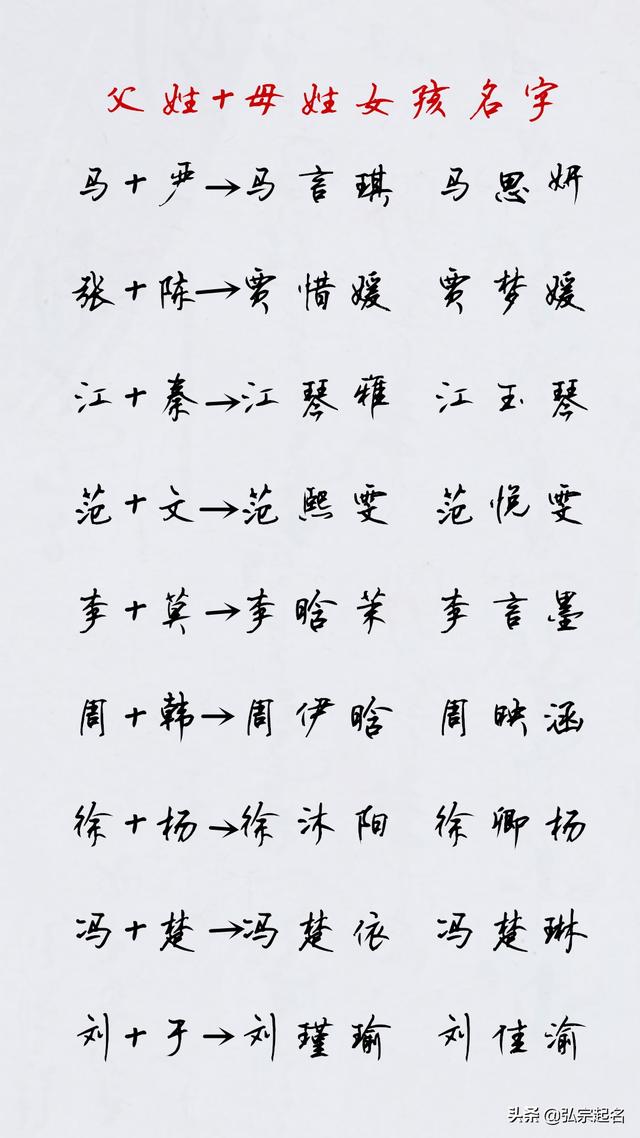 父姓+母姓女孩名字
马+严→马言琪 马思妍
张+陈→贾惜媛 贾梦媛
江+秦→江琴雅 江玉琴
范+文→范熙雯 范悦雯
李+莫→李晗茉 李言墨
周+韩→周伊晗 周映涵
徐+杨→徐沐阳 徐卿杨
冯+楚→冯楚依 冯楚琳
刘+于→刘瑾瑜 刘佳渝
头条 @弘宗起名